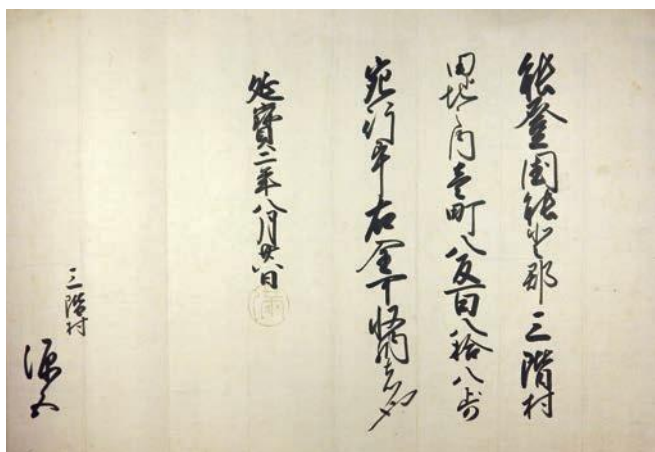 能登国能登郡三階村
田地之内壱町八反百八拾八歩
宛行畢右全可収納者也
延寶二年八月廿八日
三階村
源五